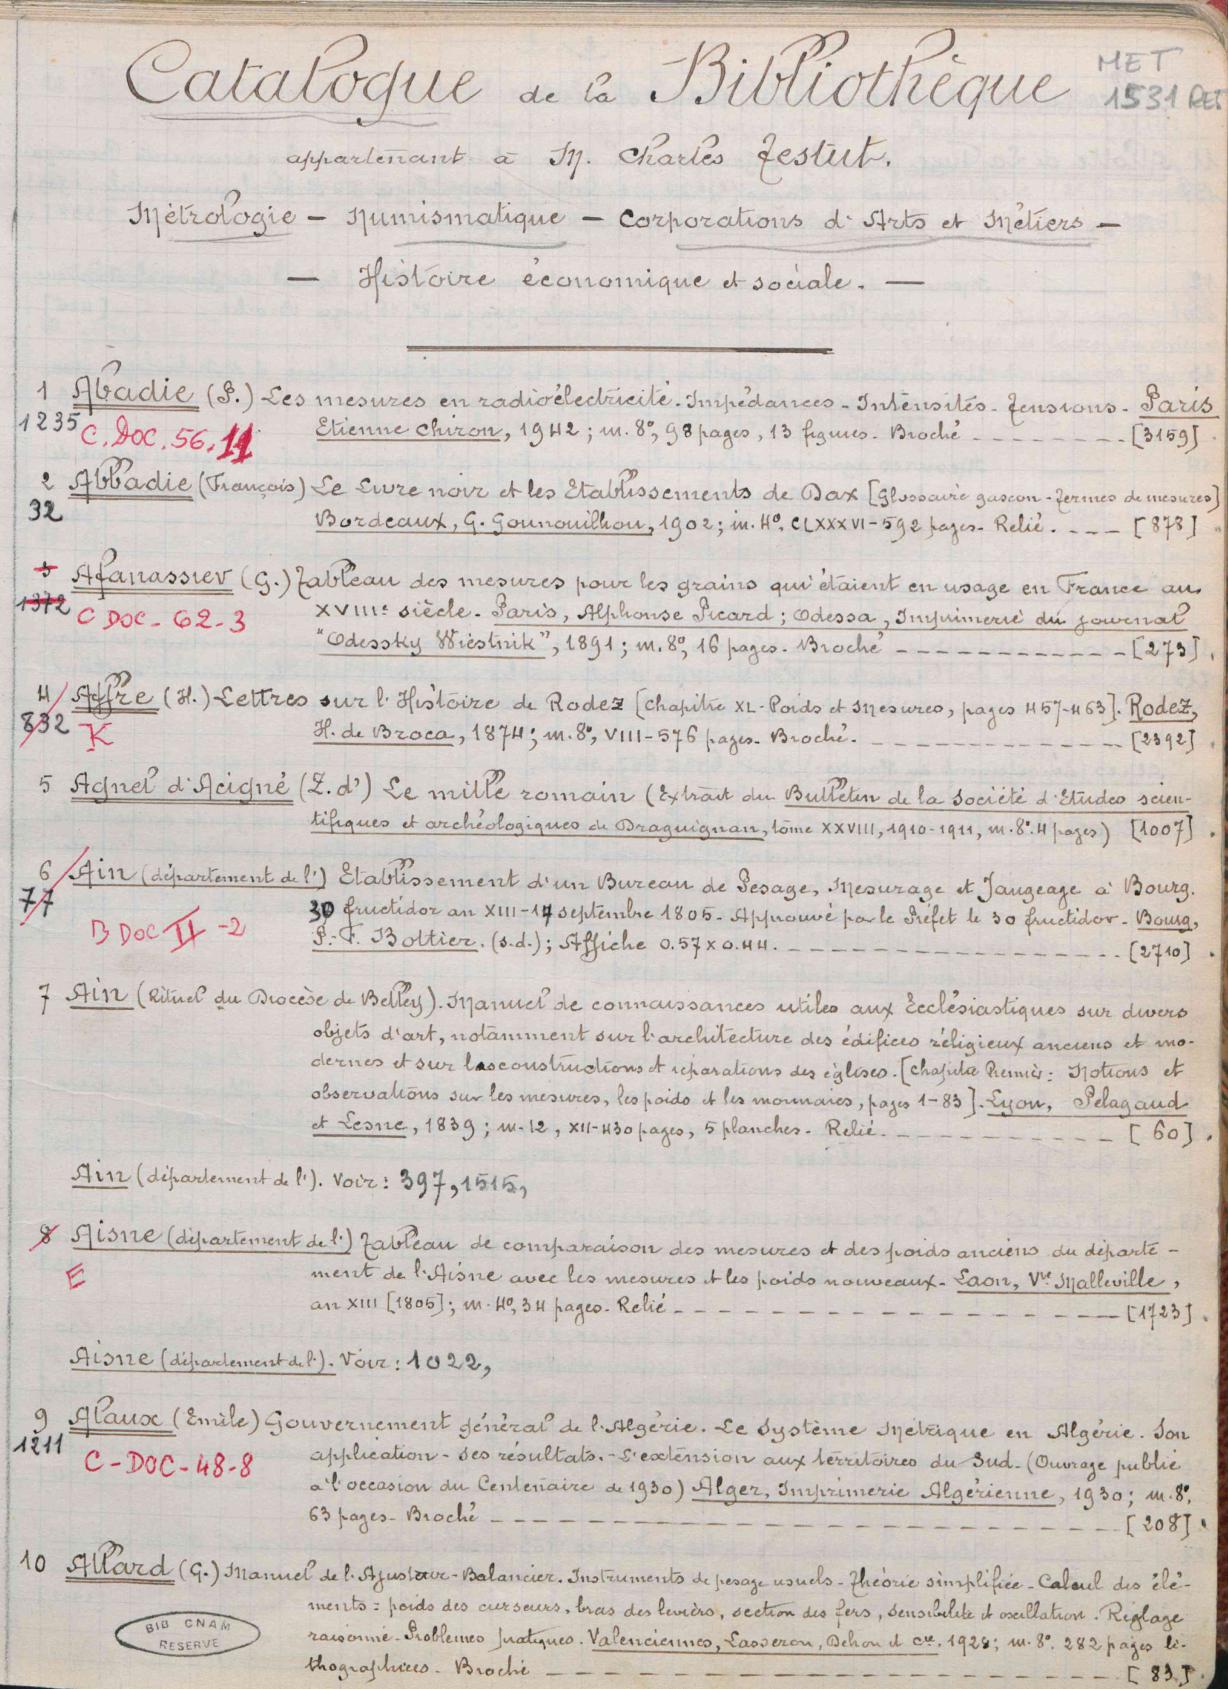 Catalogue de la Bibliothèque
MET
1531 RES
appartenant à M. Charles Testut.
Métrologie – Numismatique – Corporations d'Arts et Métiers –
— Histoire économique et sociale. —
1 Abadie (P.) Les mesures en radioélectricité. Impédances - Intensités - Tensions - Paris
1235 C. DOC. 56. 11
Etienne Chiron, 1942 ; in. 8°, 98 pages, 13 figures - Broché [3159]
2 Abbadie (François) Le Livre noir et les Etablissements de Dax [Glossaire gascon - Termes de mesures]
32
Bordeaux, G. Gounouilhou, 1902 ; in. 4°. CLXXXVI-592 pages - Relié. [878]
3 Afanassiev (G.) Tableau des mesures pour les grains qui étaient en usage en France au
1372 C DOC - 62 - 3
XVIIIe siècle - Paris, Alphonse Picard ; Odessa, Imprimerie du journal
"Odessky Wiestnik", 1891 ; in. 8°, 16 pages - Broché [273]
4 Affre (H.) Lettres sur l'Histoire de Rodez [Chapitre XL - Poids et Mesures, pages 457-463]. Rodez,
832 K
H. de Broca, 1874 ; in. 8°, VIII-576 pages - Broché. [2392]
5 Agnel d'Acigné (Z. d') Le mille romain (Extrait du Bulletin de la Société d'Etudes scien-
tifiques et archéologiques de Draguignan, tome XXVIII, 1910-1911, in. 8°. 4 pages) [1007]
6 Ain (département de l') Etablissement d'un Bureau de Pesage, Mesurage et Jaugeage à Bourg.
77
30 fructidor an XIII - 17 septembre 1805 - Approuvé par le Préfet le 30 fructidor - Bourg,
B DOC II - 2
P.-F. Bottier. (s.d.) ; Affiche 0.57 x 0.44. [2710]
7 Ain (Rituel du Diocèse de Belley). Manuel de connaissances utiles aux Ecclésiastiques sur divers
objets d'art, notamment sur l'architecture des édifices réligieux anciens et mo-
dernes et sur les constructions et réparations des églises. [Chapitre Premier : Notions et
observations sur les mesures, les poids et les monnaies, pages 1-83]. Lyon, Pelagaud
et Lesne, 1839 ; in-12, XII-430 pages, 5 planches - Relié. [60]
Ain (département de l'). Voir : 397, 1515,
8 Aisne (département de l') Tableau de comparaison des mesures et des poids anciens du départe-
E
ment de l'Aisne avec les mesures et les poids nouveaux - Laon, Vve Malleville,
an XIII [1805] ; in. 4°, 34 pages - Relié [1723]
Aisne (département de l'). Voir : 1022,
9 Alaux (Emile) Gouvernement général de l'Algérie. Le Système Métrique en Algérie. Son
1211
C - DOC - 48 - 8
application - Ses résultats. - L'extension aux territoires du Sud - (Ouvrage publié
à l'occasion du Centenaire de 1930) Alger, Imprimerie Algérienne, 1930 ; in. 8°,
63 pages - Broché [208]
10 Allard (G.) Manuel de l'Ajusteur-Balancier. Instruments de pesage usuels - Théorie simplifiée - Calcul des élé-
ments : poids des curseurs, bras des leviers, section des fers, sensibilité et oscillation. Réglage
raisonné - Problèmes pratiques. Valenciennes, Lasseron, Dehon et Cie. 1928 ; in. 8°. 282 pages li-
thographiées - Broché [83]
BIB CNAM
RESERVE